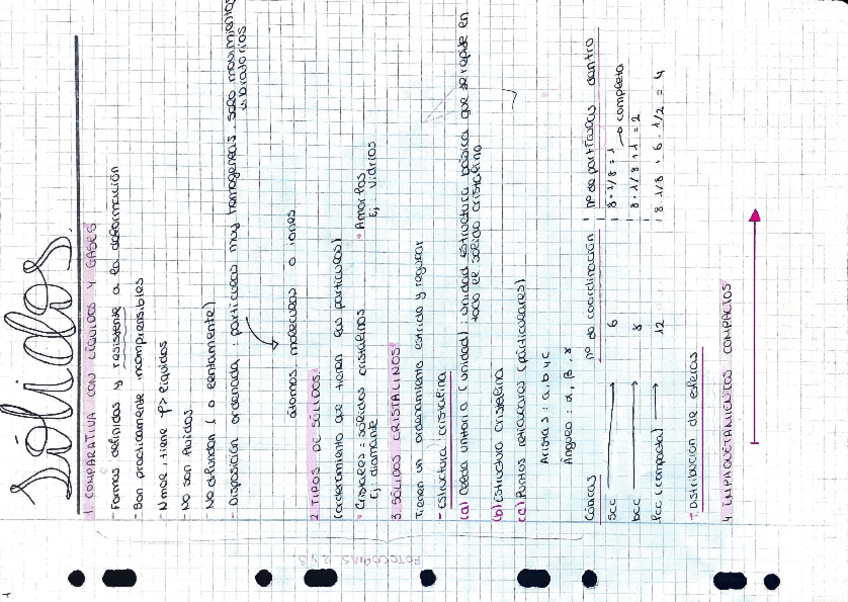 Sólidos.
1. COMPARATIVA CON LÍQUIDOS Y GASES
- Formas definidas y resistente a la deformación
- Son prácticamente incompresibles
- Nmol, tiene ρ > líquidos
- No son fluidos
- No difunden (o lentamente)
- Disposición ordenada: partículas muy homogéneas solo movimientos vibratorios
átomos, moléculas o iones
2. TIPOS DE SÓLIDOS:
(ordenamiento que tienen las partículas)
• Cristales: sólidos cristalinos
Ej: diamante
• Amorfos
Ej: vidrios
3. SÓLIDOS CRISTALINOS
Tienen un ordenamiento estricto y regular
- estructura cristalina
(a) Celda unitaria (unidad): unidad estructura básica que se repite en
todo el sólido cristalino
(b) Estructura cristalina
(c) Puntos reticulares (partículares)
Aristas: a, b y c
Ángulo: α, β, γ
Cúbicas nº de coordinación nº de partículas dentro
scc → 6 8·1/8 = 1 → completa
bcc → 8 8·1/8 + 1 = 2
fcc (compacta) → 12 8·1/8 + 6·1/2 = 4
Distribución de esferas
4. EMPAQUETAMIENTOS COMPACTOS
FOTOCOPIAS 2 y 3.